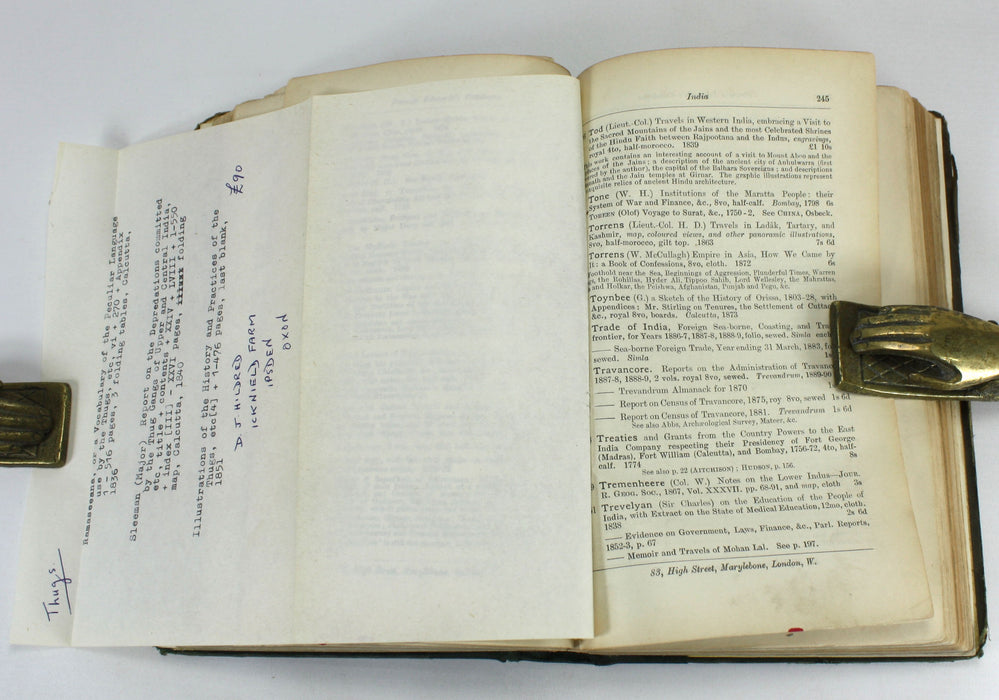 Thugs
Ramaseeana, or a Vocabulary of the Peculiar Language
use by the Thugs, etc vi + 270 + Appendix
1 - 516 pages, 3 folding tables. Calcutta,
1836
Sleeman (Major) Report on the Depredations committed
by the Thug Gangs of Upper and Central India,
etc. title + contents + XXIV + LVIII + 1-550
+ index [III] - XXVI pages, folding
map, Calcutta, 1840
Illustrations of the History and Practices of the
Thugs, etc[4] + 1-476 pages, last blank,
1851
£90
D J HILDRED
ICKNIELD FARM
IPSDEN
OXON
India 245
Tod (Lieut.-Col.) Travels in Western India, embracing a Visit to
the Sacred Mountains of the Jains and the most Celebrated Shrines
of the Hindu Faith between Rajpootana and the Indus, engravings,
royal 4to, half-morocco. 1839 £1 10s
work contains an interesting account of a visit to Mount Aboo and the
of the Jains; a description of the ancient city of Anhulwarra (first
by the author), the capital of the Balhara Sovereigns; and descriptions
and the Jain temples at Girnar. The graphic illustrations represent
exquisite relics of ancient Hindu architecture.
Tone (W. H.) Institutions of the Maratta People: their
System of War and Finance, &c., 8vo, half-calf. Bombay, 1798 6s
TOREEN (Olof) Voyage to Surat, &c., 1750-2. See CHINA, Osbeck.
Torrens (Lieut.-Col. H. D.) Travels in Ladâk, Tartary, and
Kashmir, map, coloured views, and other panoramic illustrations,
8vo, half-morocco, gilt top. 1863 7s 6d
Torrens (W. McCullagh) Empire in Asia, How We Came by
It: a Book of Confessions, 8vo, cloth. 1872 6s
Foothold near the Sea, Beginnings of Aggression, Plunderful Times, Warren
the Rohillas, Hyder Ali, Tippoo Sahib, Lord Wellesley, the Mahrattas,
and Holkar, the Peishwa, Afghanistan, Punjab and Pegu, &c.
Toynbee (G.) a Sketch of the History of Orissa, 1803-28, with
Appendices: Mr. Stirling on Tenures, the Settlement of
&c., royal 8vo, boards. Calcutta, 1873
Trade of India, Foreign Sea-borne, Coasting, and
frontier, for Years 1886-7, 1887-8, 1888-9, folio, sewed. Simla each
—— Sea-borne Foreign Trade, Year ending 31 March, 1883,
sewed. Simla
Travancore. Reports on the Administration of
1887-8, 1888-9, 2 vols. royal 8vo, sewed. Trevandrum, 1889-90
—— Trevandrum Almanack for 1870
—— Report on Census of Travancore, 1875, roy 8vo, sewed 1s 6d
—— Report on Census of Travancore, 1881. Trevandrum 1s 6d
See also Abbs, Archæological Survey, Mateer, &c.
Treaties and Grants from the Country Powers to the East
India Company respecting their Presidency of Fort George
(Madras), Fort William (Calcutta), and Bombay, 1756-72, 4to, half-
calf. 1774 8s
See also p. 22 (AITCHISON); HUDSON, p. 156.
Tremenheere (Col. W.) Notes on the Lower Indus—JOUR.
R. GEOG. SOC., 1867, Vol. XXXVII. pp. 68-91, and map, cloth 3s
Trevelyan (Sir Charles) on the Education of the People of
India, with Extract on the State of Medical Education, 12mo, cloth.
1838 2s 6d
—— Evidence on Government, Laws, Finance, &c., Parl. Reports,
1852-3, p. 67
—— Memoir and Travels of Mohan Lal. See p. 197.
83, High Street, Marylebone, London, W.